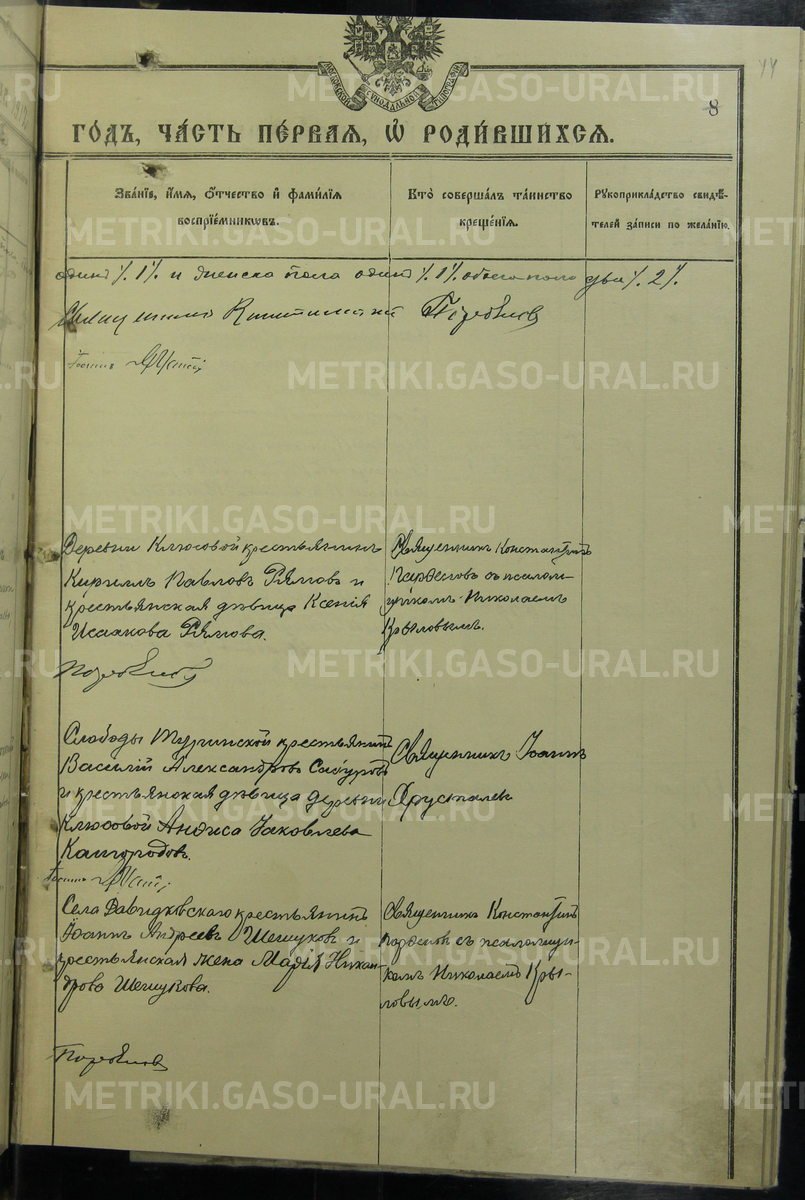 44
8
МОСКОВСКОЙ СѴНОДАЛЬНОЙ ТИПОГРАФІИ
ГО́ДЪ, ЧА́СТЬ ПЕ́РВАЯ, Ѡ҆ РОДИ́ВШИХСЯ.
Зва́нїе, и҆́мя, ѻ҆́тчество и҆ фами́лїя
воспрїе́мникωвъ.
Кто̀ соверша́лъ та́инство
креще́нїя.
Рꙋкоприкла́дство свидѣ́-
телей за́писи по жела́нїю.
одинъ /. 1 /. и женска пола одинъ /. 1 /. обоего пола два /. 2 /.
Священникъ Константинъ
Іоаннъ
Деревни Клюсовой крестьянинъ
Кириллъ Павловъ Рямовъ и
крестьянская дѣвица Ксенія
Исаакова Рямова.
Священникъ Константинъ
съ псалом-
щикомъ Николаемъ
Крыловымъ.
Слободы Туринской крестьянинъ
Василій Александровъ
и крестьянская дѣвица деревни
Клюсовой Анфиса Іаковлева
Кайгородов.
Священникъ Іоаннъ
Хрусталевъ
Іоаннъ
Села Давыдковскаго крестьянинъ
Іоаннъ Андреевъ Шешуковъ и
крестьянская жена Марія Никан-
дрова Шешукова.
Священникъ Константинъ
съ псаломщи-
комъ Николаемъ Кры-
ловымъ.
METRIKI.GASO-URAL.RU